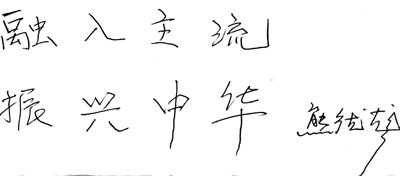 融入主流
振兴中华